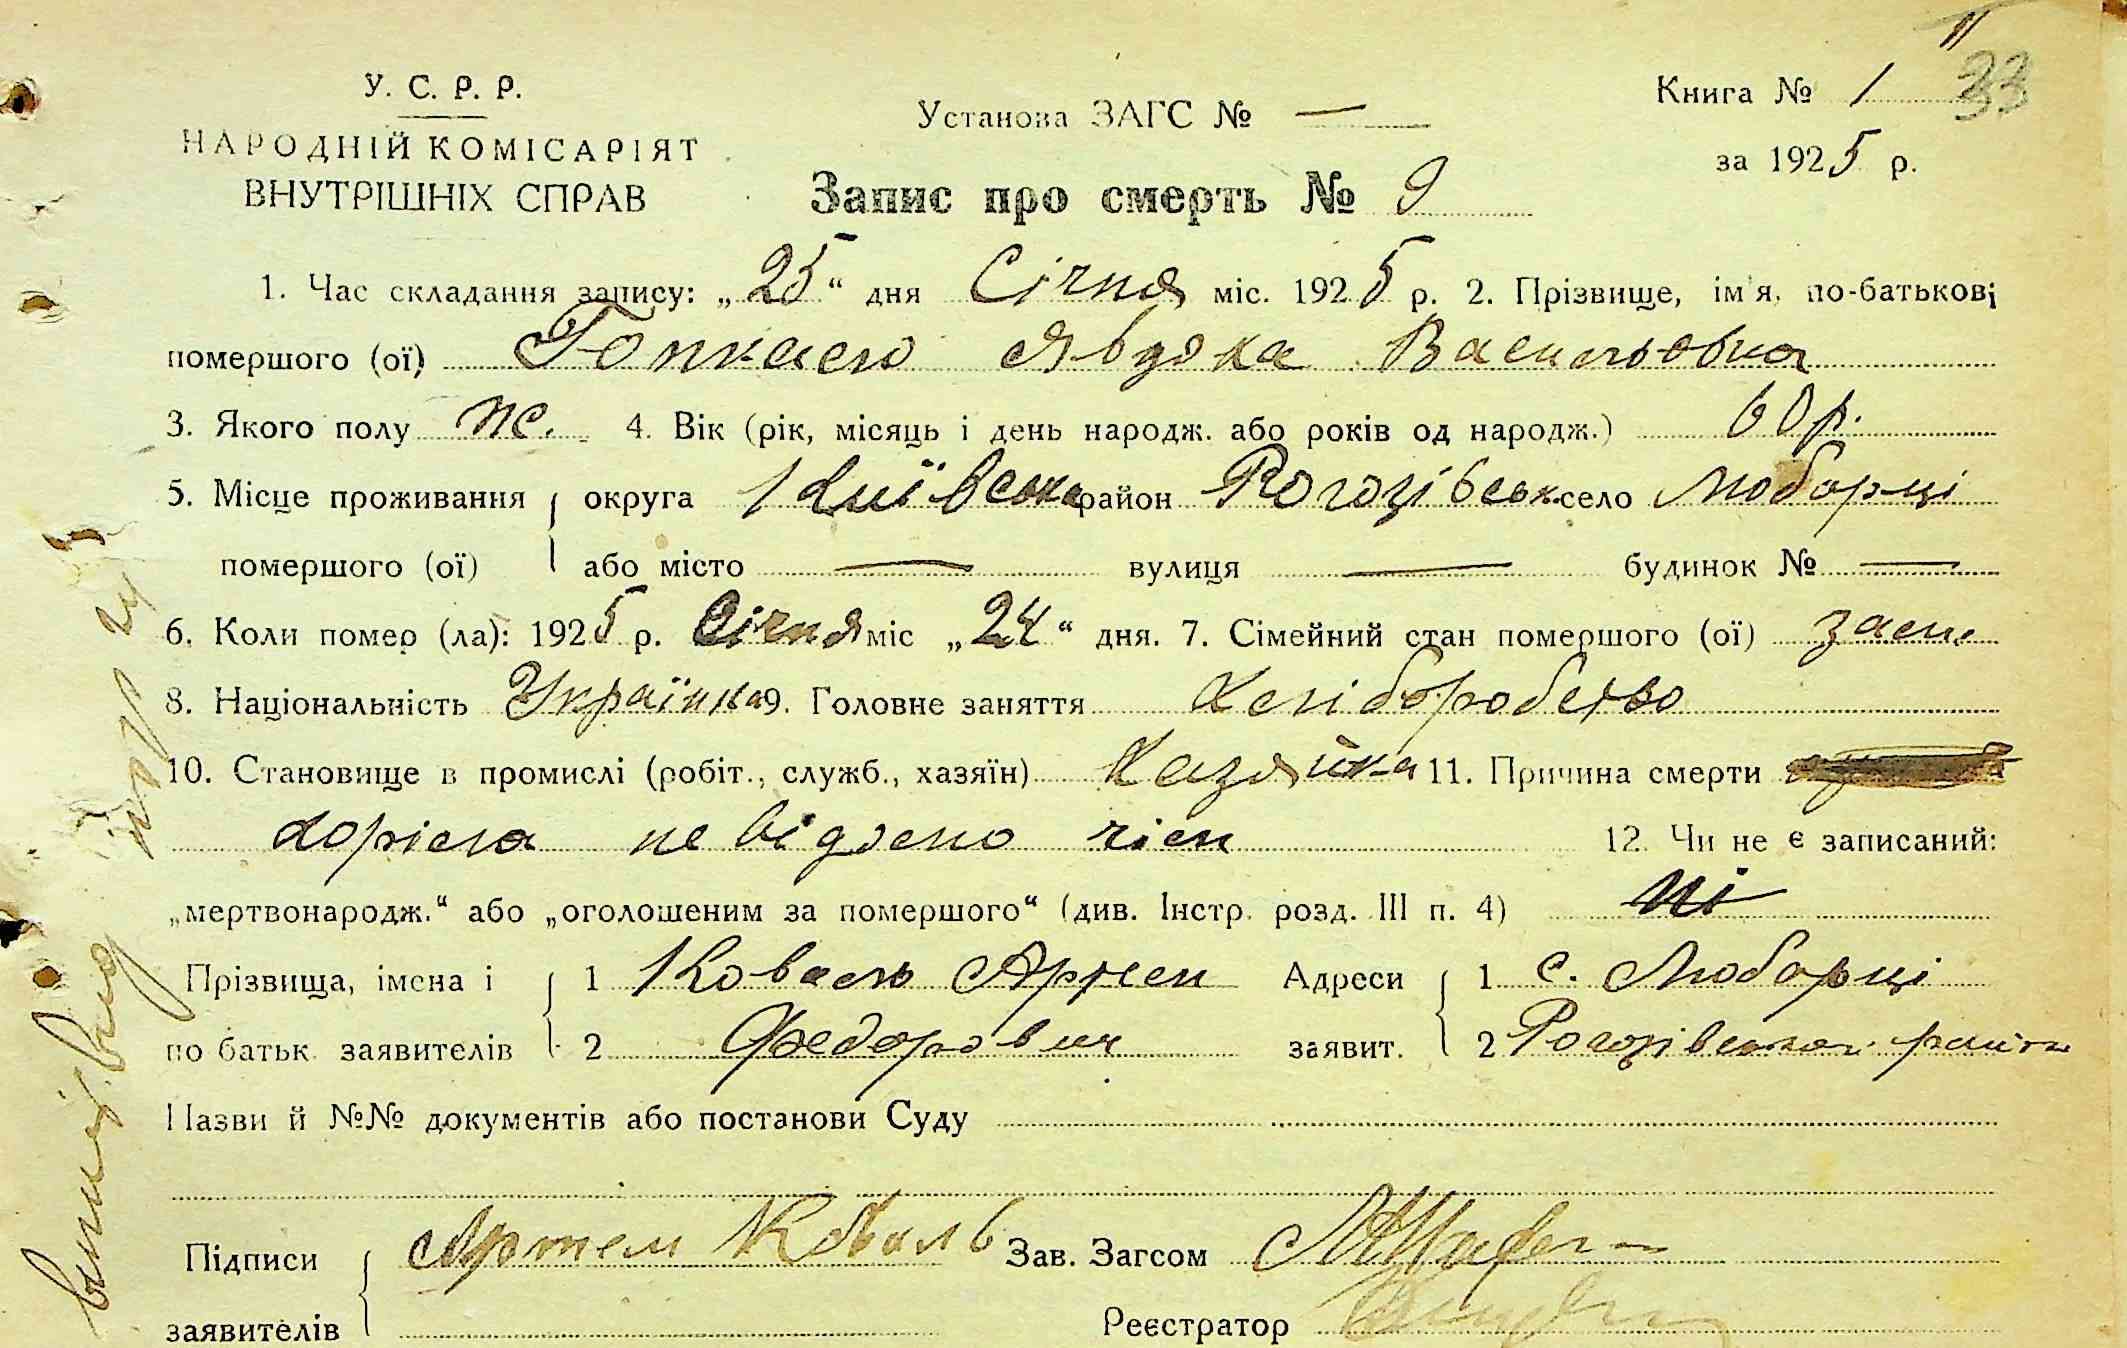 У. С. Р. Р.
НАРОДНІЙ КОМІСАРІЯТ
ВНУТРІШНІХ СПРАВ
Установа ЗАГС № —
Книга № 1 33
за 1925 р.
Запис про смерть № 9
1. Час складання запису: „25“ дня Січня міс. 1925 р. 2. Прізвище, ім'я, по-батькові
помершого (ої) Явдоха Васильовна
3. Якого полу ж. 4. Вік (рік, місяць і день народж. або років од народж.) 60 р.
5. Місце проживання округа Київська район Рогозівськ село Любарці
помершого (ої) або місто — вулиця — будинок № —
6. Коли помер (ла): 1925 р. Січня міс „24“ дня. 7. Сімейний стан помершого (ої)
8. Національність Українка 9. Головне заняття Хліборобство
10. Становище в промислі (робіт., служб., хазяїн) Хазяйка 11. Причина смерти
невідомо чім 12. Чи не є записаний:
„мертвонародж.“ або „оголошеним за помершого“ (див. Інстр. розд. III п. 4) ні
Прізвища, імена і 1 Коваль Артем Адреси 1 с. Любарці
по батьк. заявителів 2 Федорович заявит. 2 Рогозівськой район
Назви й №№ документів або постанови Суду
Підписи Артем Коваль Зав. Загсом
заявителів Реєстратор